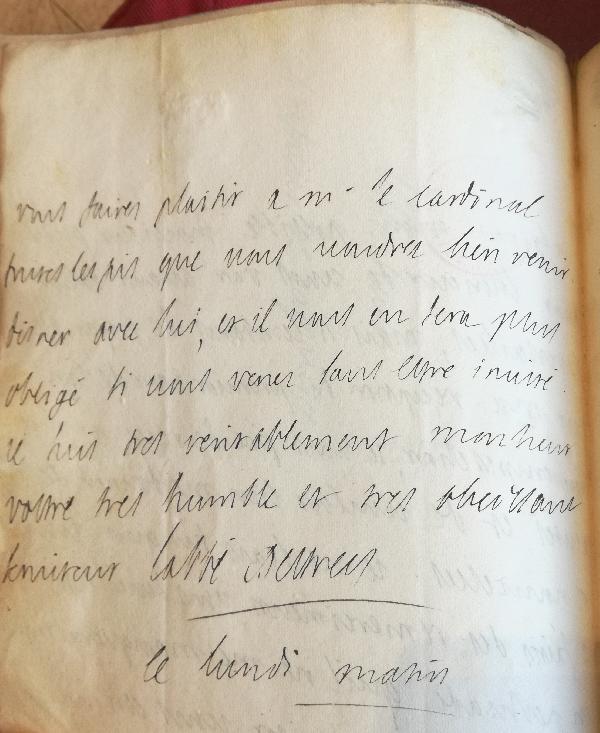 vous faires plaisir a mr le cardinal
que vous voudres bien venir
disner avec lui, et il vous en sera plus
obligé si vous venes sans estre invité.
je suis tres veritablement monsieur
vostre tres humble et tres obeissant
serviteur l'abbé Destrees
ce lundi matin